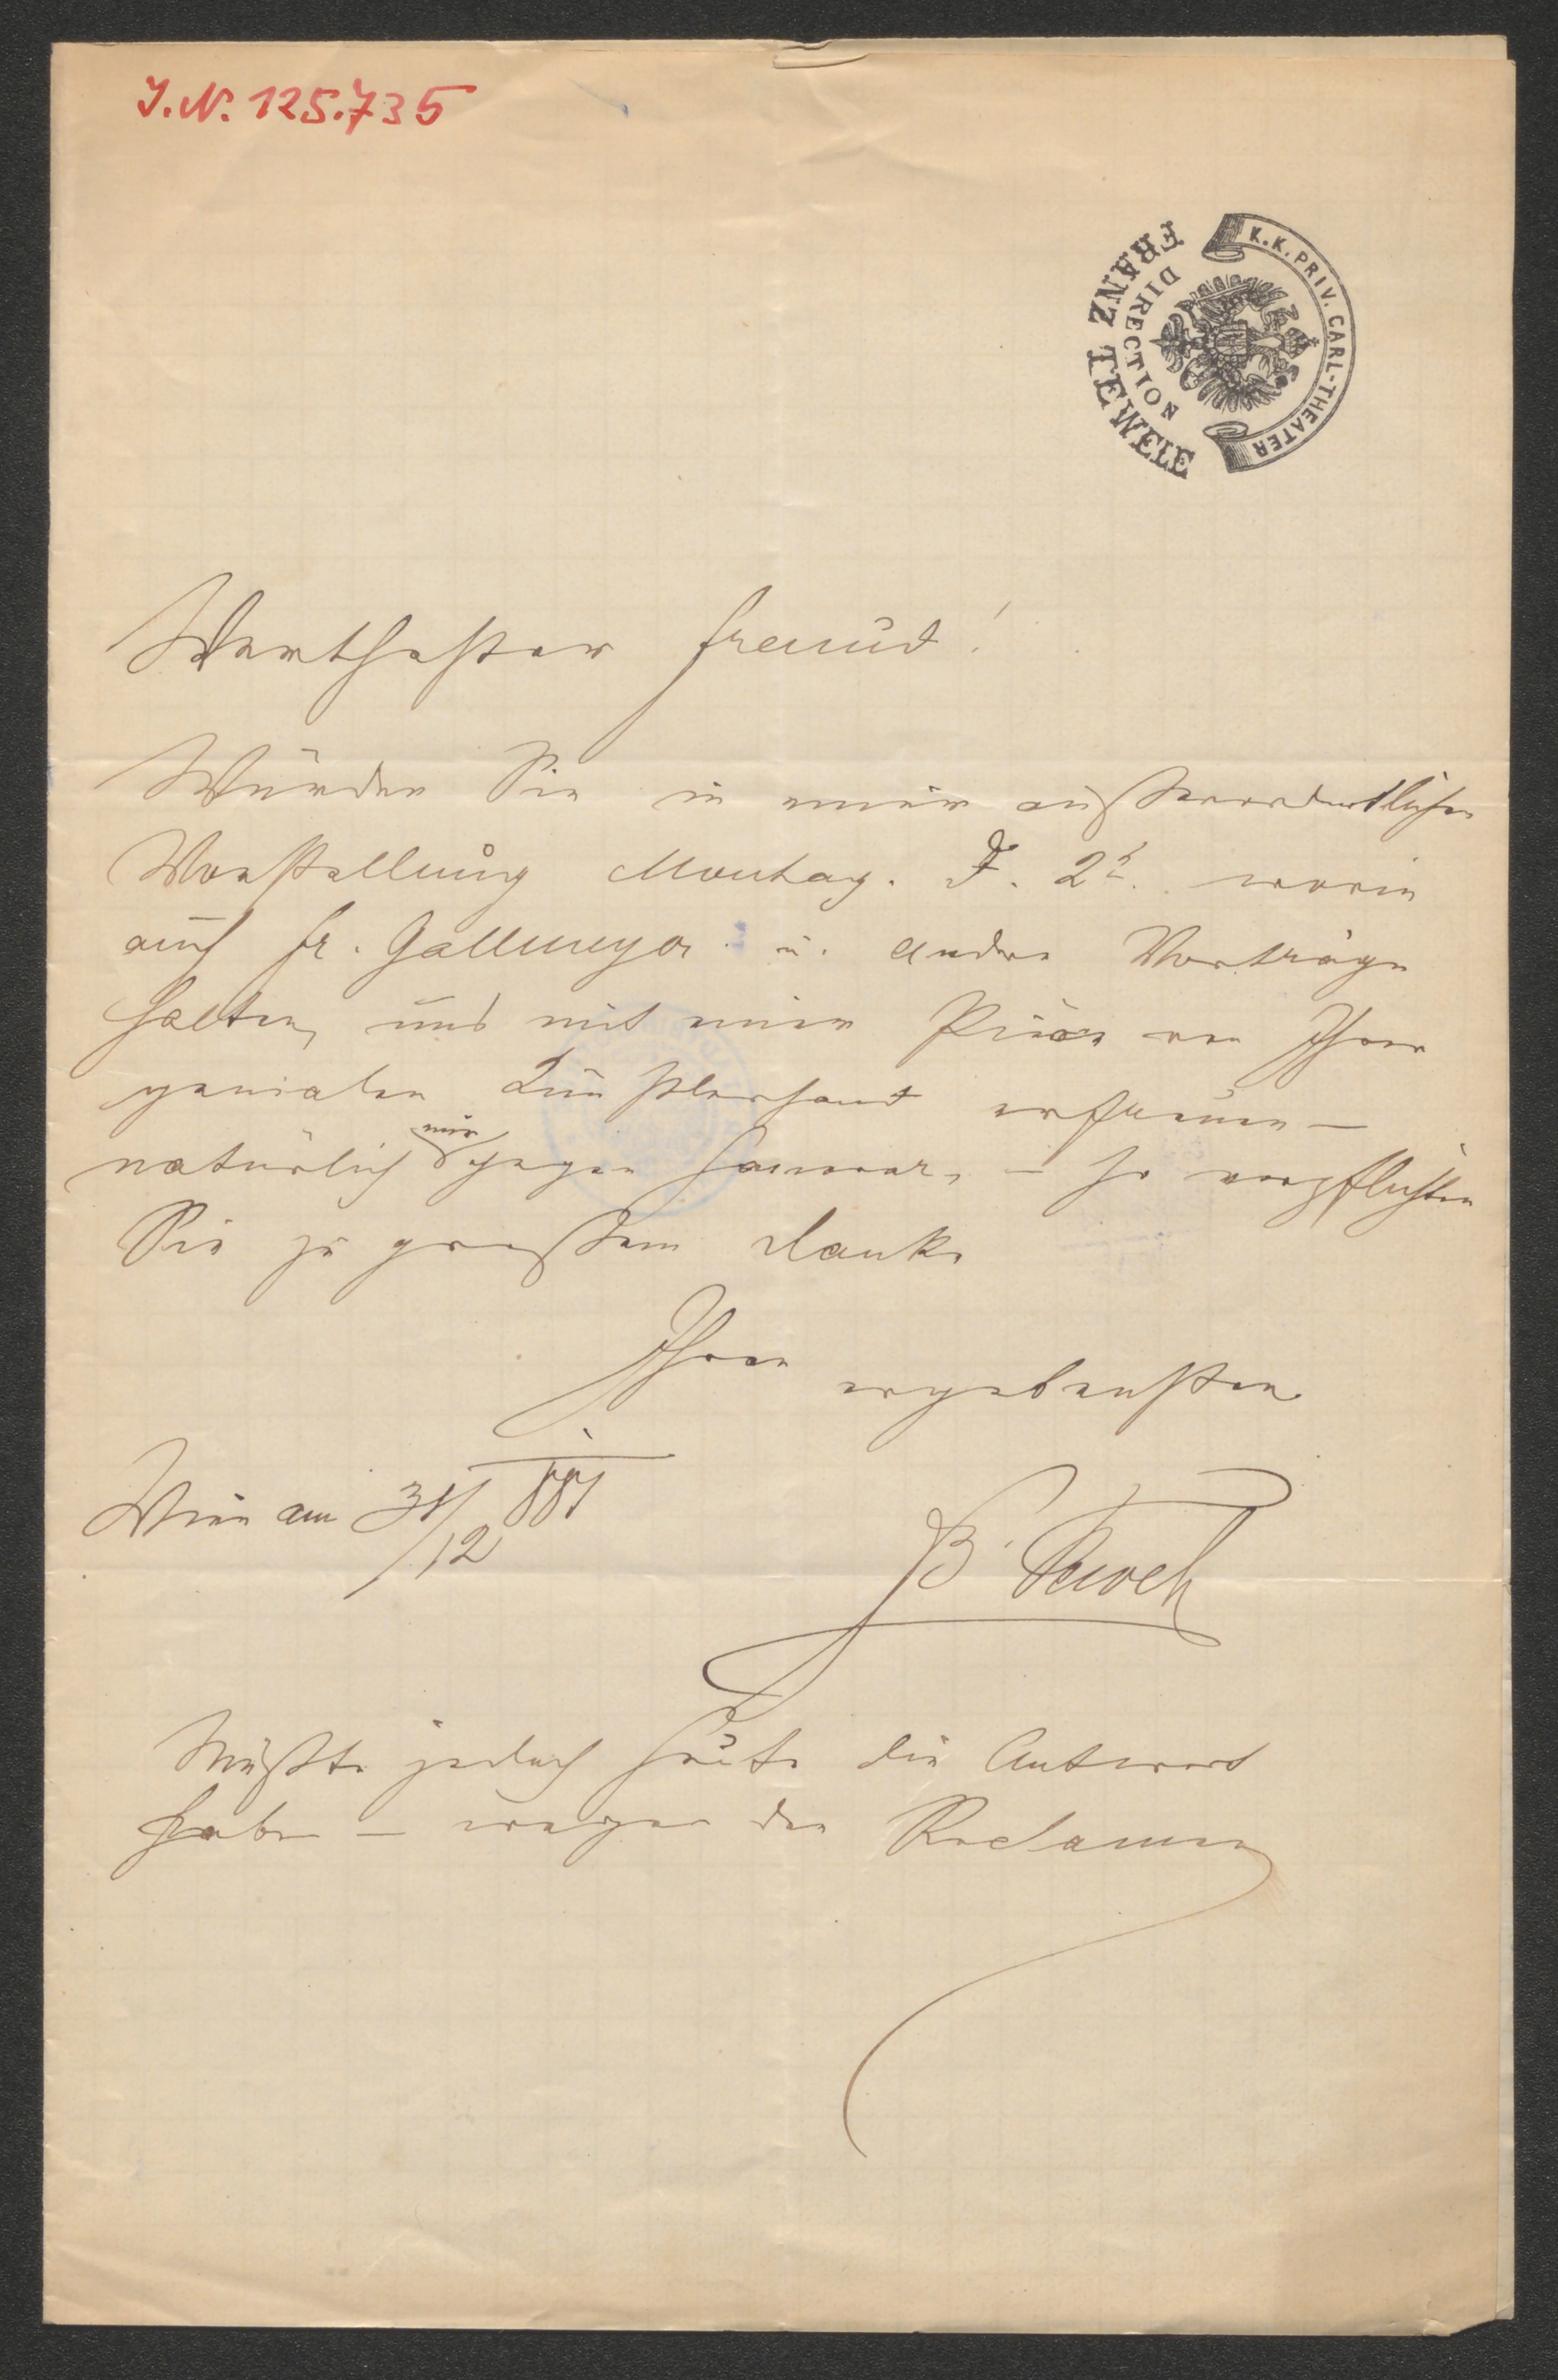 J.N. 125.735
K.K. PRIV. CARL-THEATER
DIRECTION
FRANZ TEWELE
Werthester Freund!
Würden Sie in einer außerordentlichen
Vorstellung Montag. d. 2t. worin
auch Fr. Gallmeyer u. andere Vorträge
halten, uns mit einer Pièce von Ihrer
genialen Künstlerhand erfreuen –
natürlich nur gegen Honorar, – so verpflichten
Sie zu großem Danke
Ihren ergebensten
Wien am 31/12 881
B.
Müßte jedoch heute die Antwort
haben – wegen der Reclamen